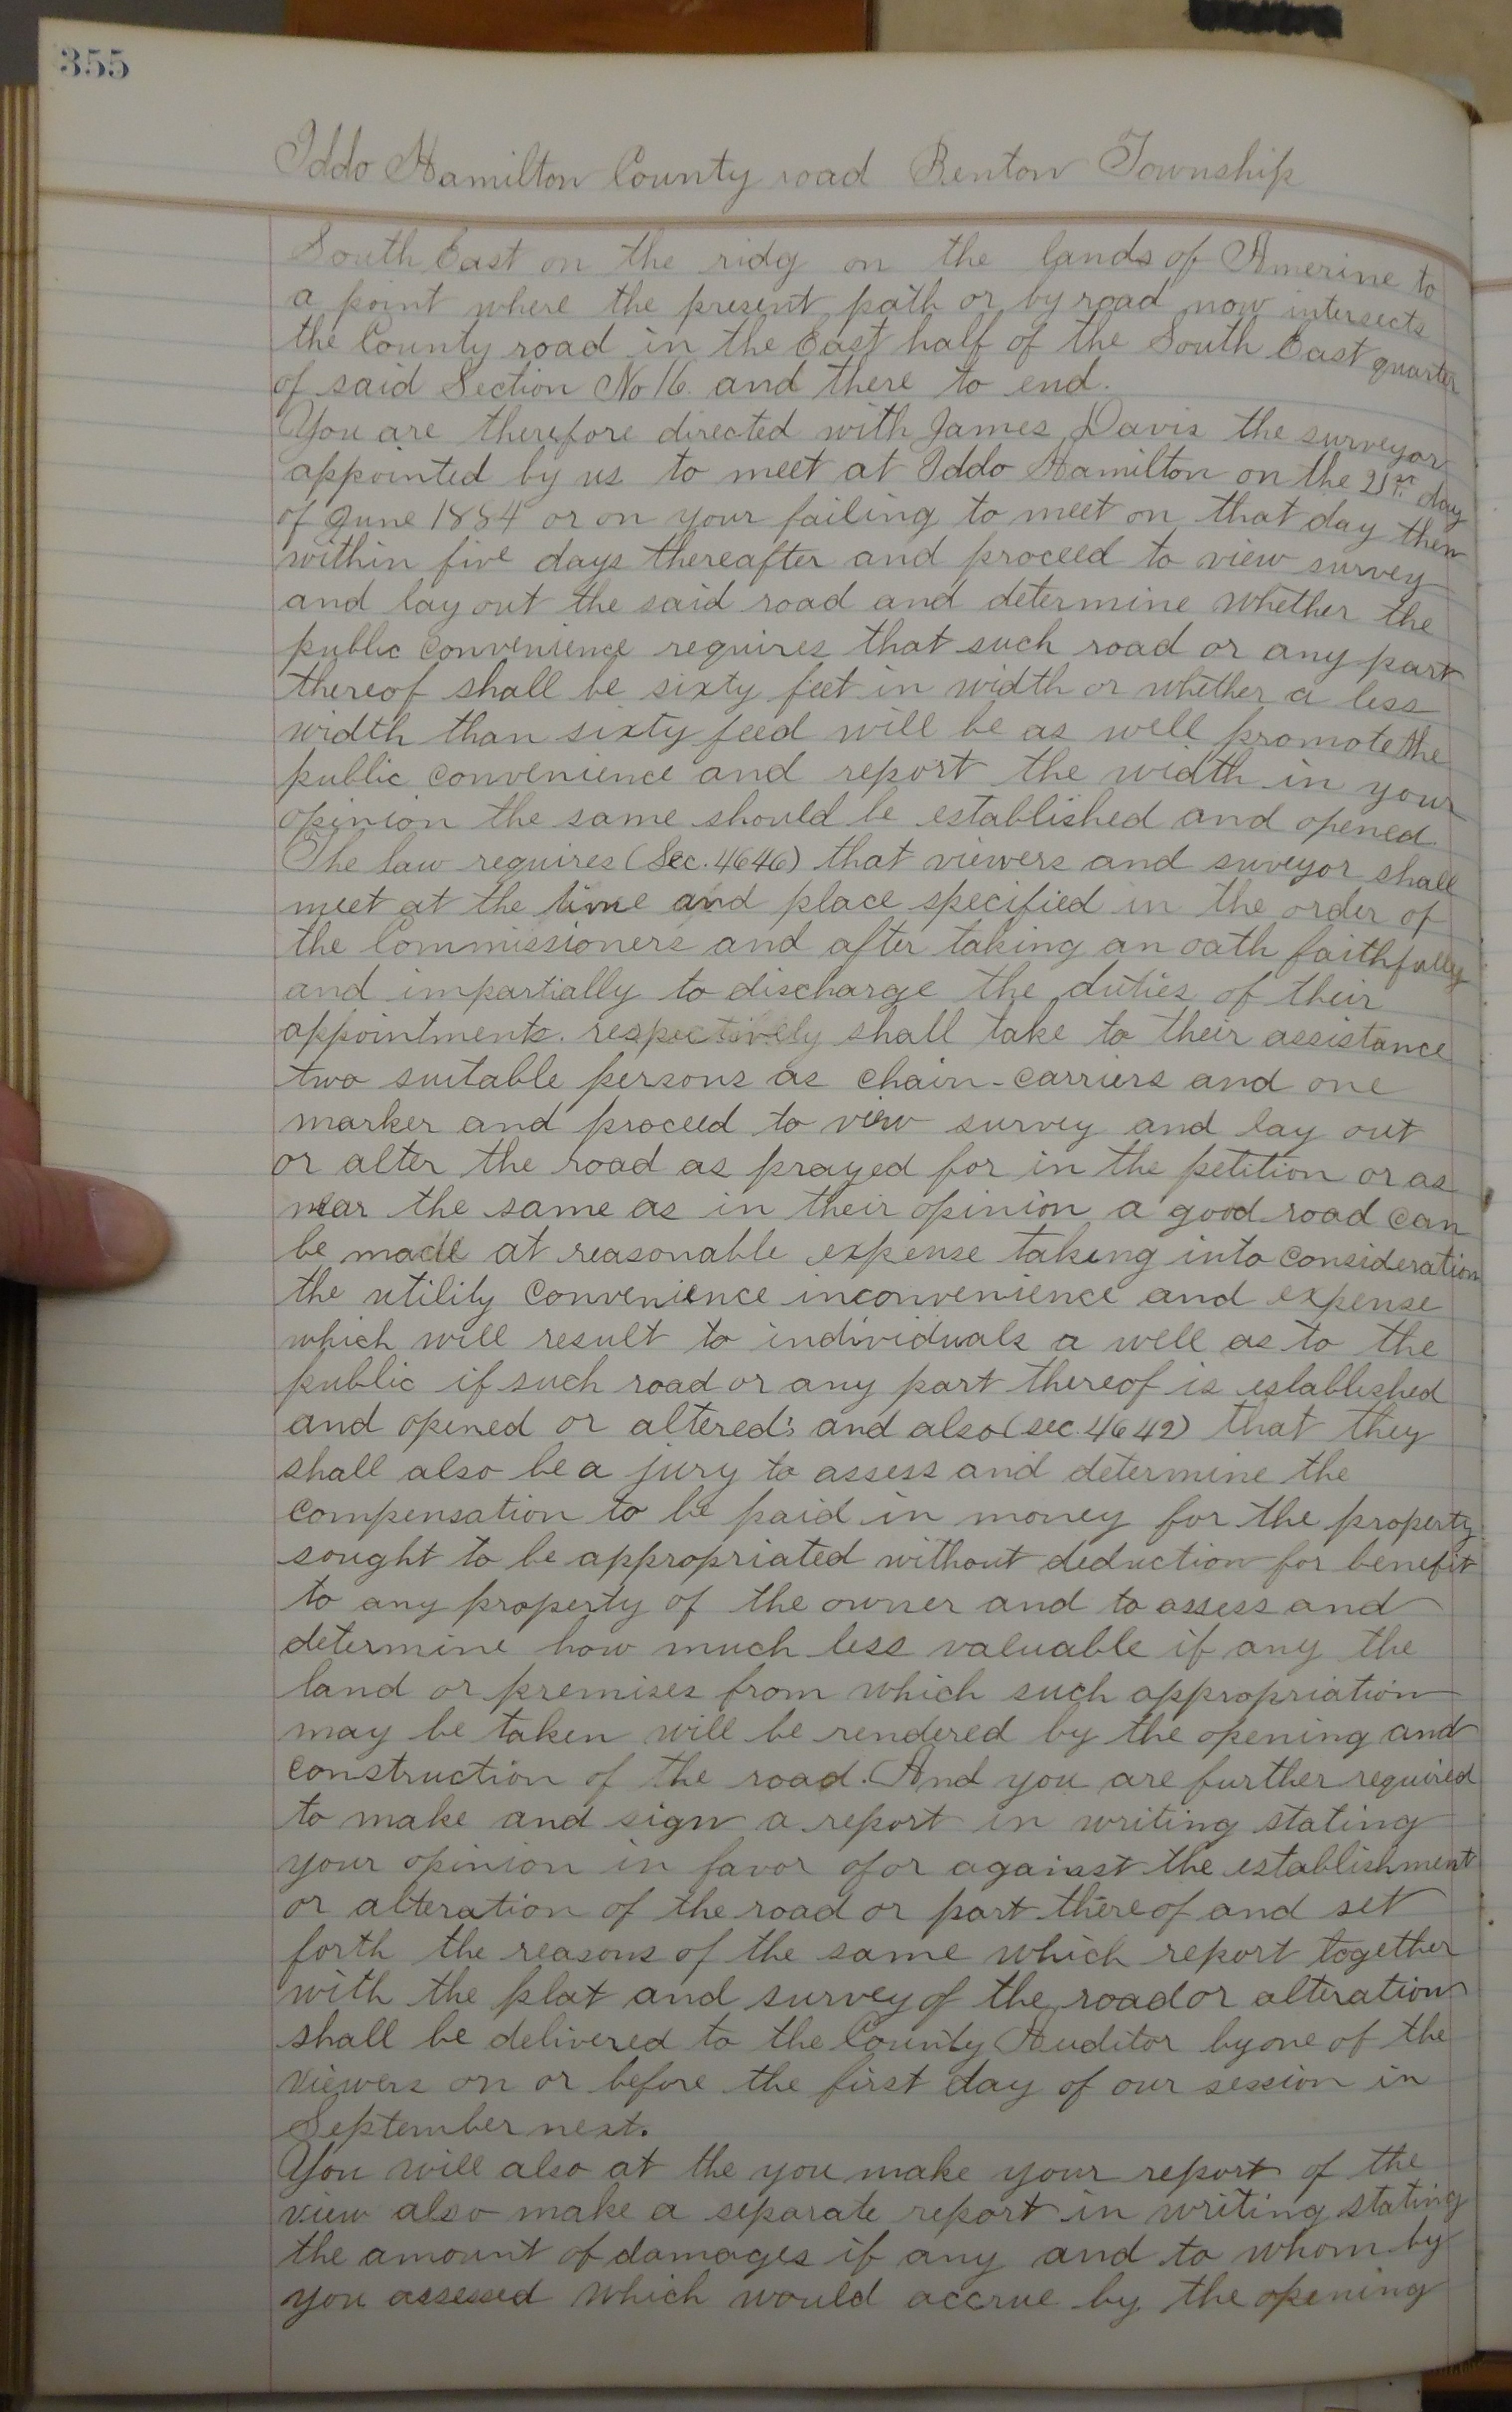 355
Iddo Hamilton County road Benton Township
South East on the ridg on the lands of Amerine to
a point where the present path or by road now intersects
the County road in the East half of the South East quarter
of said Section No 16. and there to end.
You are therefore directed with James Davis the surveyor
appointed by us to meet at Iddo Hamilton on the 21st day
of June 1884 or on your failing to meet on that day then
within five days thereafter and proceed to view survey
and lay out the said road and determine whether the
public convenience requires that such road or any part
thereof shall be sixty feet in width or whether a less
width than sixty feed will be as well promote the
public convenience and report the width in your
opinion the same should be established and opened.
The law requires (Sec. 4646) that viewers and suveyor shall
meet at the time and place specified in the order of
the Commissioners and after taking an oath faithfully
and impartially to discharge the duties of their
appointments. respectively shall take to their assistance
two suitable persons as chain-carriers and one
marker and proceed to view survey and lay out
or alter the road as prayed for in the petition or as
near the same as in their opinion a good road can
be made at reasonable expense taking into consideration
the utility convenience inconvenience and expense
which will result to individuals a well as to the
public if such road or any part thereof is established
and opened or altered; and also (sec. 4642) that they
shall also be a jury to assess and determine the
compensation to be paid in money for the property
sought to be appropriated without deduction for benefit
to any property of the owner and to assess and
determine how much less valuable if any the
land or premises from which such appropriation
may be taken will be rendered by the opening and
construction of the road. And you are further required
to make and sign a report in writing stating
your opinion in favor of or against the establishment
or alteration of the road or part thereof and set
forth the reasons of the same which report together
with the plat and survey of the road or alteration
shall be delivered to the County Auditor by one of the
viewers on or before the first day of our session in
September next.
You will also at the you make your report of the
view also make a separate report in writing stating
the amount of damages if any and to whom by
you assessed which would accrue by the opening